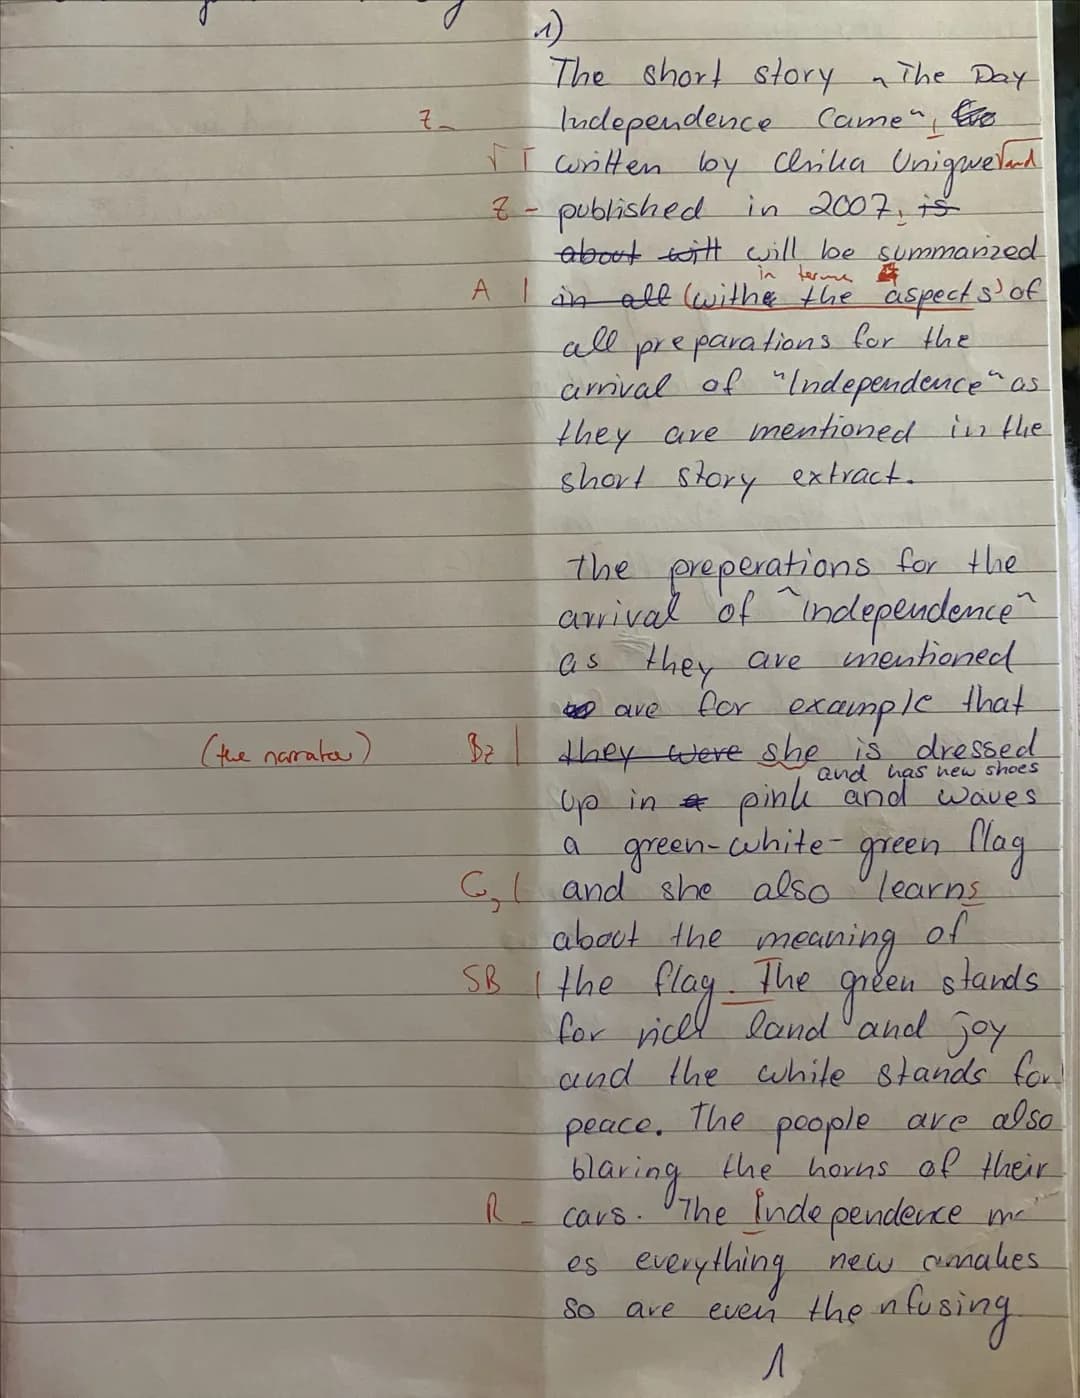 1)
The short story „The Day
Z - Independence Came",
√ T written by Chika Unigwe √and
Z - published in 2007, is
about will will be summarized
in terms
A | in all (with the aspects) of
all preparations for the
arrival of "Independence" as
they are mentioned in the
short story extract.
The preperations for the
arrival of "independence"
as they are mentioned
are for example that
(the narrator) Bz | they were she is dressed
and has new shoes
up in a pink and waves
a green-white-green flag
G, | and she also learns
about the meaning of
SB | the flag. The green stands
for rich land and joy
and the white stands for
peace. The people are also
blaring the horns of their
R - cars. The Independence
es everything new
so are even the
1